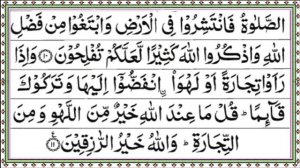 الصَّلٰوةُ فَانْتَشِرُوْا فِی الْاَرْضِ وَابْتَغُوْا مِنْ فَضْلِ
اللّٰهِ وَاذْكُرُوا اللّٰهَ كَثِیْرًا لَّعَلَّكُمْ تُفْلِحُوْنَ ﴿۱۰﴾ وَاِذَا
رَاَوْا تِجَارَةً اَوْ لَهْوَا ۨانْفَضُّوْۤا اِلَیْهَا وَتَرَكُوْكَ
قَآىِٕمًا ؕ قُلْ مَا عِنْدَ اللّٰهِ خَیْرٌ مِّنَ اللَّهْوِ وَمِنَ
التِّجَارَةِ ؕ وَاللّٰهُ خَیْرُ الرّٰزِقِیْنَ ﴿۱۱﴾